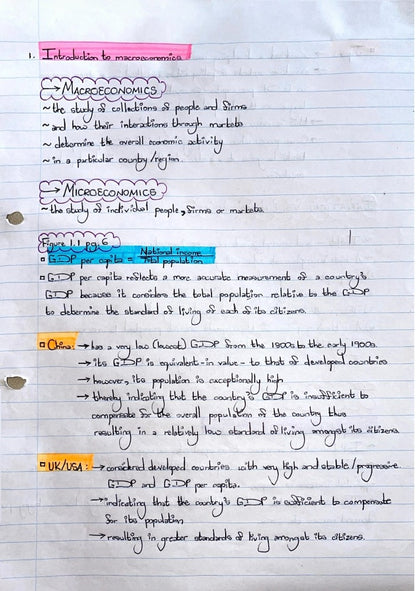 1. Introduction to macroeconomics
→ MACROECONOMICS
~ the study of collections of people and firms
~ and how their interactions through markets
~ determine the overall economic activity
~ in a particular country/region
→ MICROECONOMICS
~ the study of individual people, firms or markets
Figure 1.1 pg. 6
GDP per capita = National income / Total population
GDP per capita reflects a more accurate measurement of a country's
GDP because it considers the total population relative to the GDP
to determine the standard of living of each of its citizens.
China: → has a very low (lowest) GDP from the 1800s to the early 1900s.
→ its GDP is equivalent - in value - to that of developed countries
→ however, its population is exceptionally high
→ thereby indicating that the country's GDP is insufficient to
compensate for the overall population of the country thus
resulting in a relatively low standard of living amongst its citizens
UK/USA: → considered developed countries with very high and stable/progressive
GDP and GDP per capita.
→ indicating that the country's GDP is sufficient to compensate
for its population
→ resulting in greater standards of living amongst its citizens.